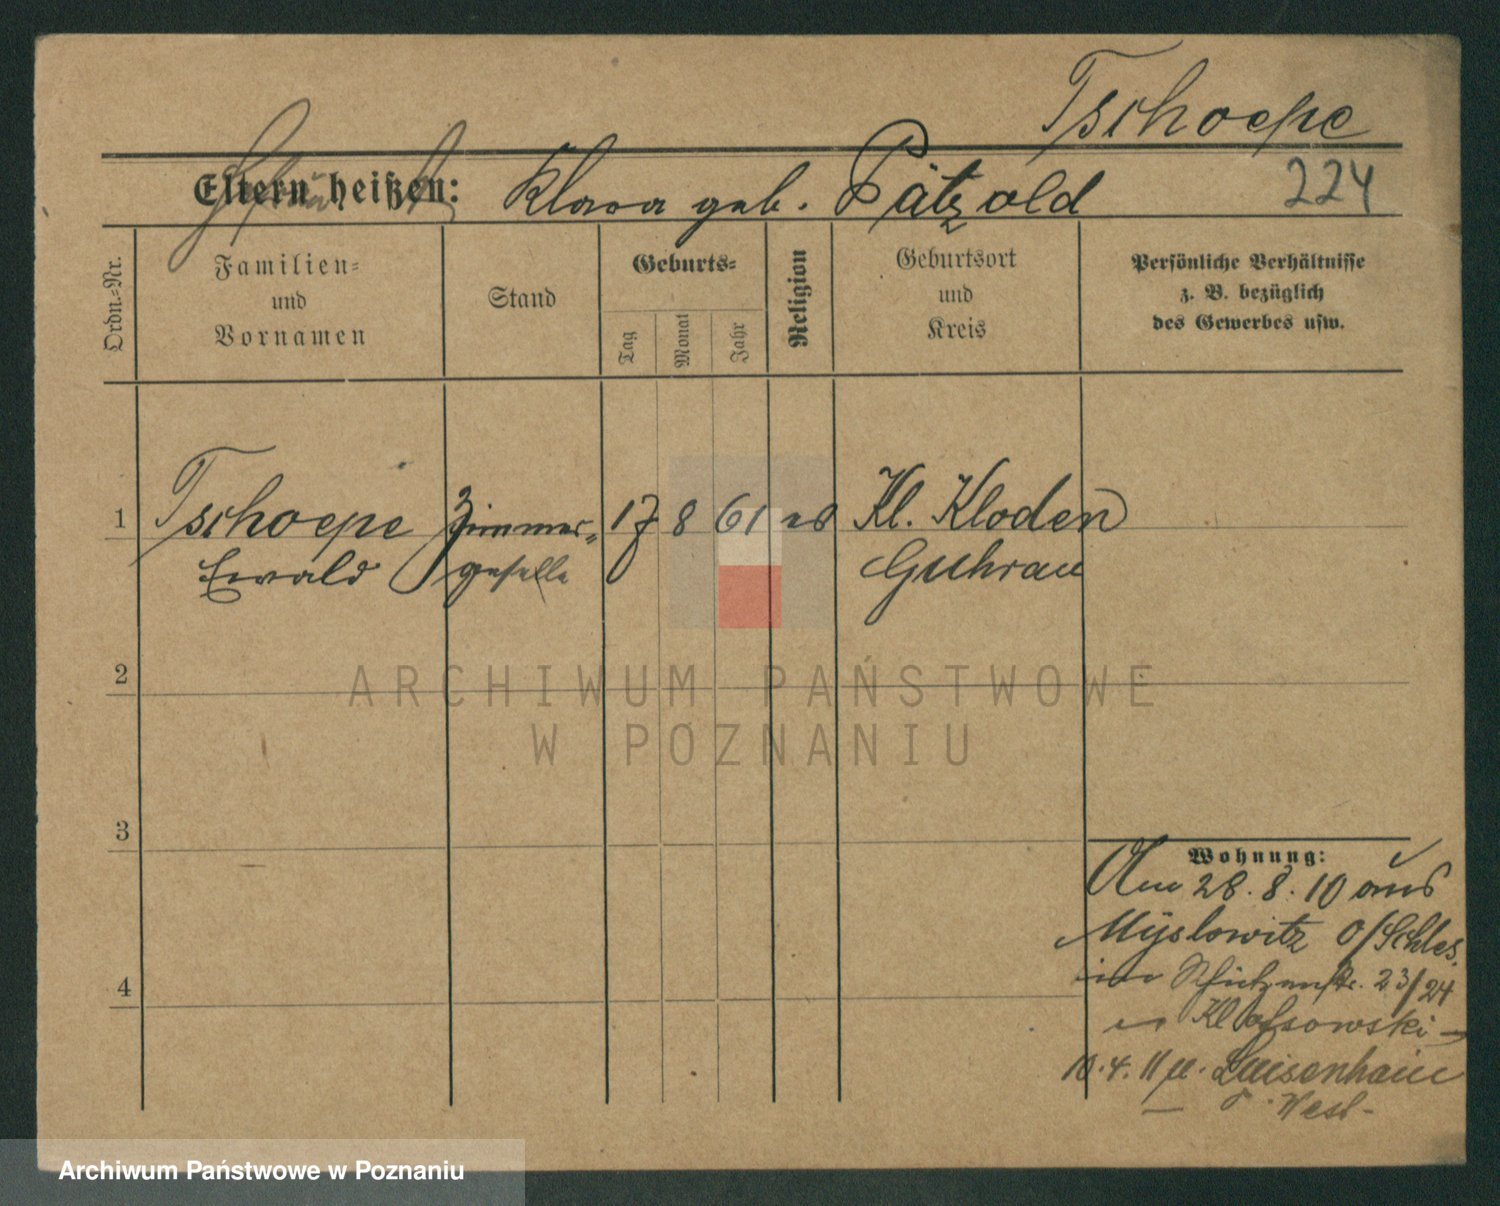 Tschoepe
Eltern heißen: Klara geb. Pätzold 224
Ordn.-Nr.
Familien-
und
Vornamen
Stand
Geburts-
Tag
Monat
Jahr
Religion
Geburtsort
und
Kreis
Persönliche Verhältnisse
z. B. bezüglich
des Gewerbes usw.
1 Tschoepe Zimmer- 17 8 61 Kl. Kloden
Ewald geselle Guhrau
2
3
4
Wohnung:
Am 28. 8. 10 aus
Myslowitz O/Schles.
Schützenstr. 23/24
10. 4. 11 Luisenhain
ARCHIWUM PAŃSTWOWE
W POZNANIU
Archiwum Państwowe w Poznaniu